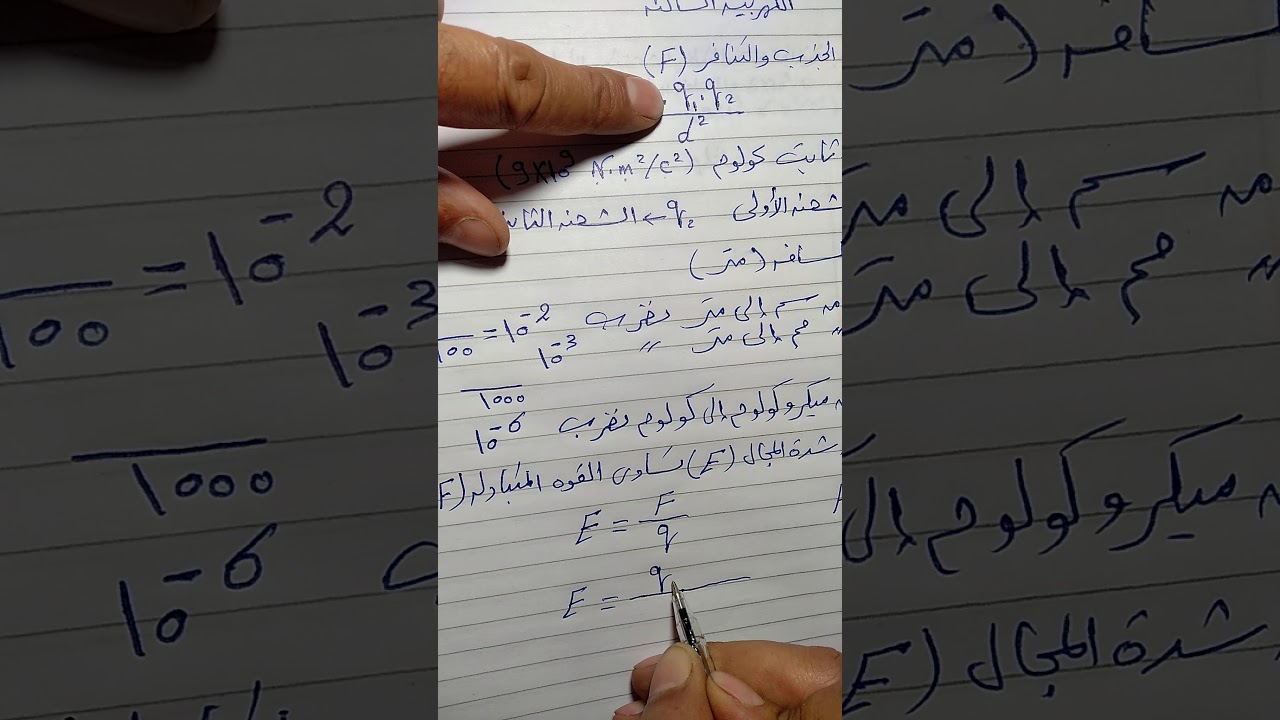 الكهربية الساكنة
الجذب والتنافر (F)
. q₁ . q₂
d²
ثابت كولوم (9×10⁹ N.m²/c²)
شحنه الأولى q₂ ← الشحنه الثان
(متر)
سم إلى متر نضرب 10⁻² = 100
" مم إلى متر " 10⁻³
1000
ميكروكولوم إلى كولوم نضرب 10⁻⁶
شدة المجال (E) تساوى القوه المتبادله (F
E = F
q
E = q